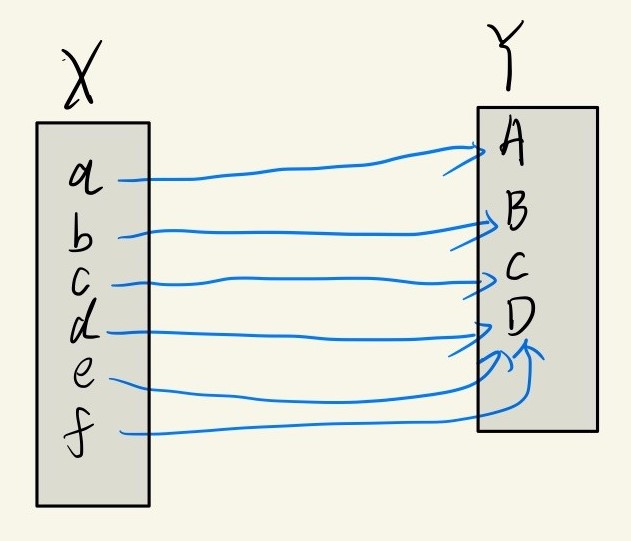 X
Y
a
b
c
d
e
f
A
B
C
D